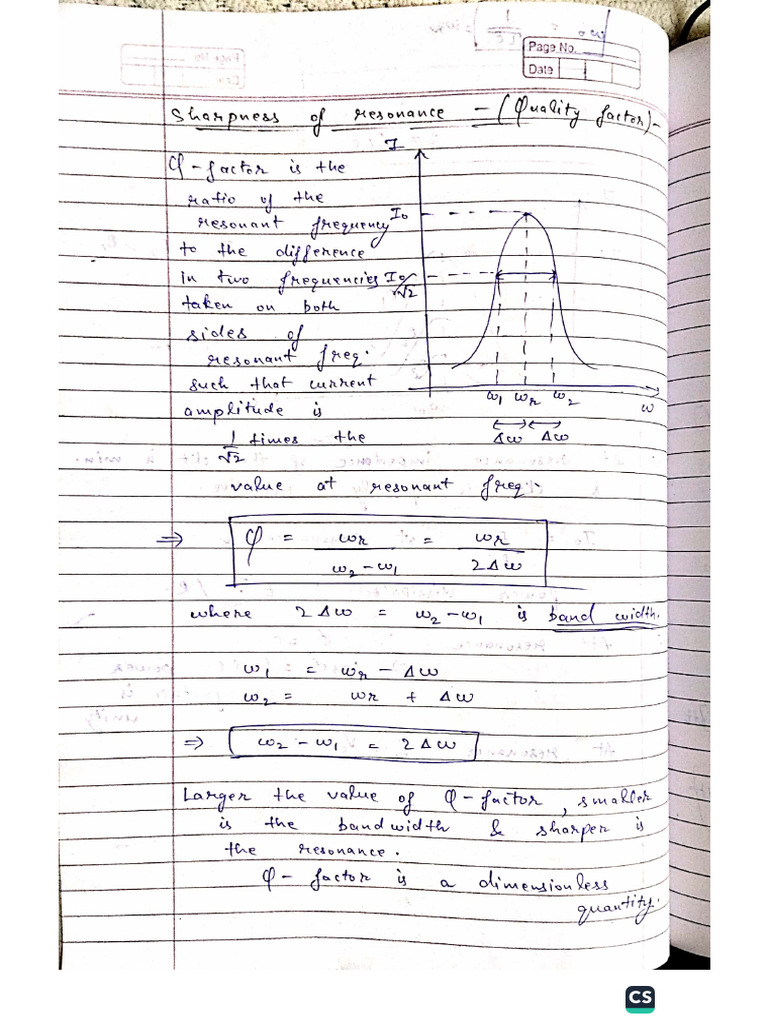 Page No.
Date
Sharpness of resonance - (Quality factor) -
Q-factor is the
ratio of the
resonant frequency
to the difference
in two frequencies
taken on both
sides of
resonant freq.
such that current
amplitude is
1/√2 times the
value at resonant freq.
I
I₀
I₀/√2
ω₁ ωr ω₂
ω
Δω Δω
⇒ Q = ωr/(ω₂-ω₁) = ωr/2Δω
where 2Δω = ω₂-ω₁ is band width.
ω₁ = ωr - Δω
ω₂ = ωr + Δω
⇒ ω₂-ω₁ = 2Δω
Larger the value of Q-factor, smaller
is the bandwidth & sharper is
the resonance.
Q-factor is a dimensionless
quantity.
CS